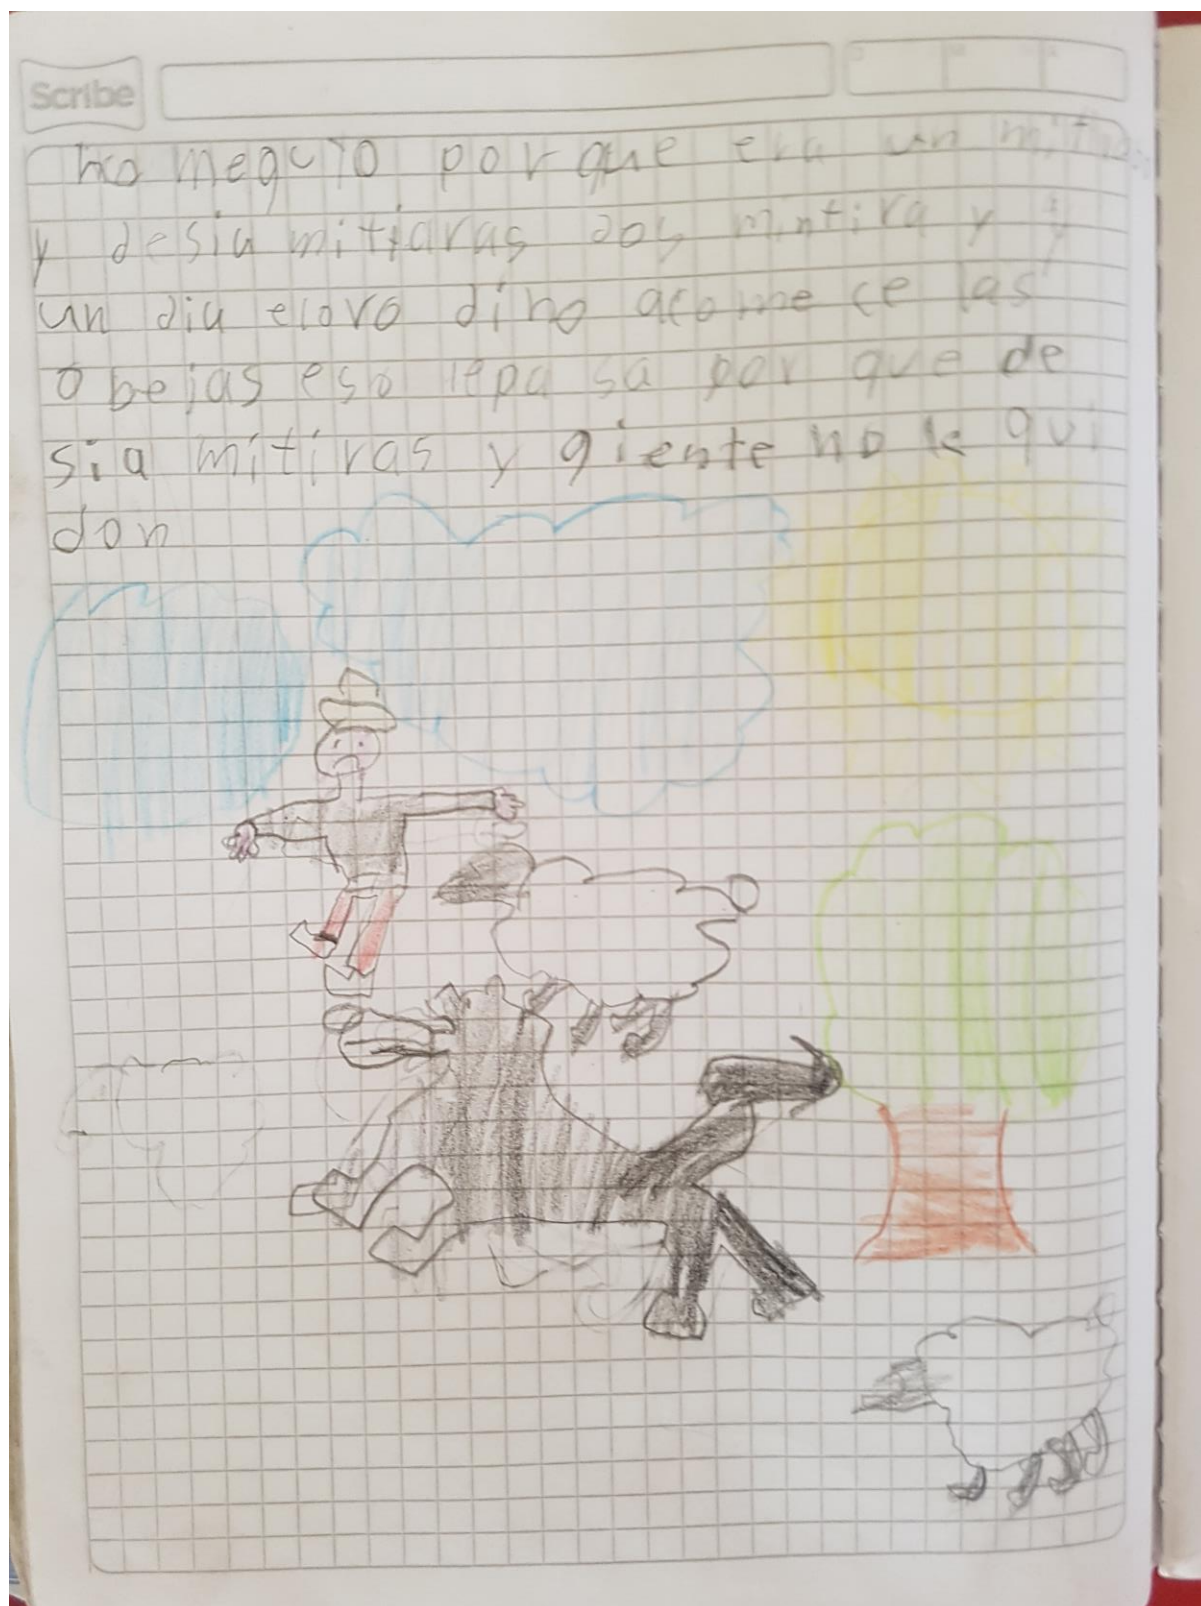 Scribe
no megcto porque era un
y desia mitiaras dos mintira y y
un dia elovo dino acome ce las
obejas eso lepa sa por que de
sia mitiras y giente no le qui
don